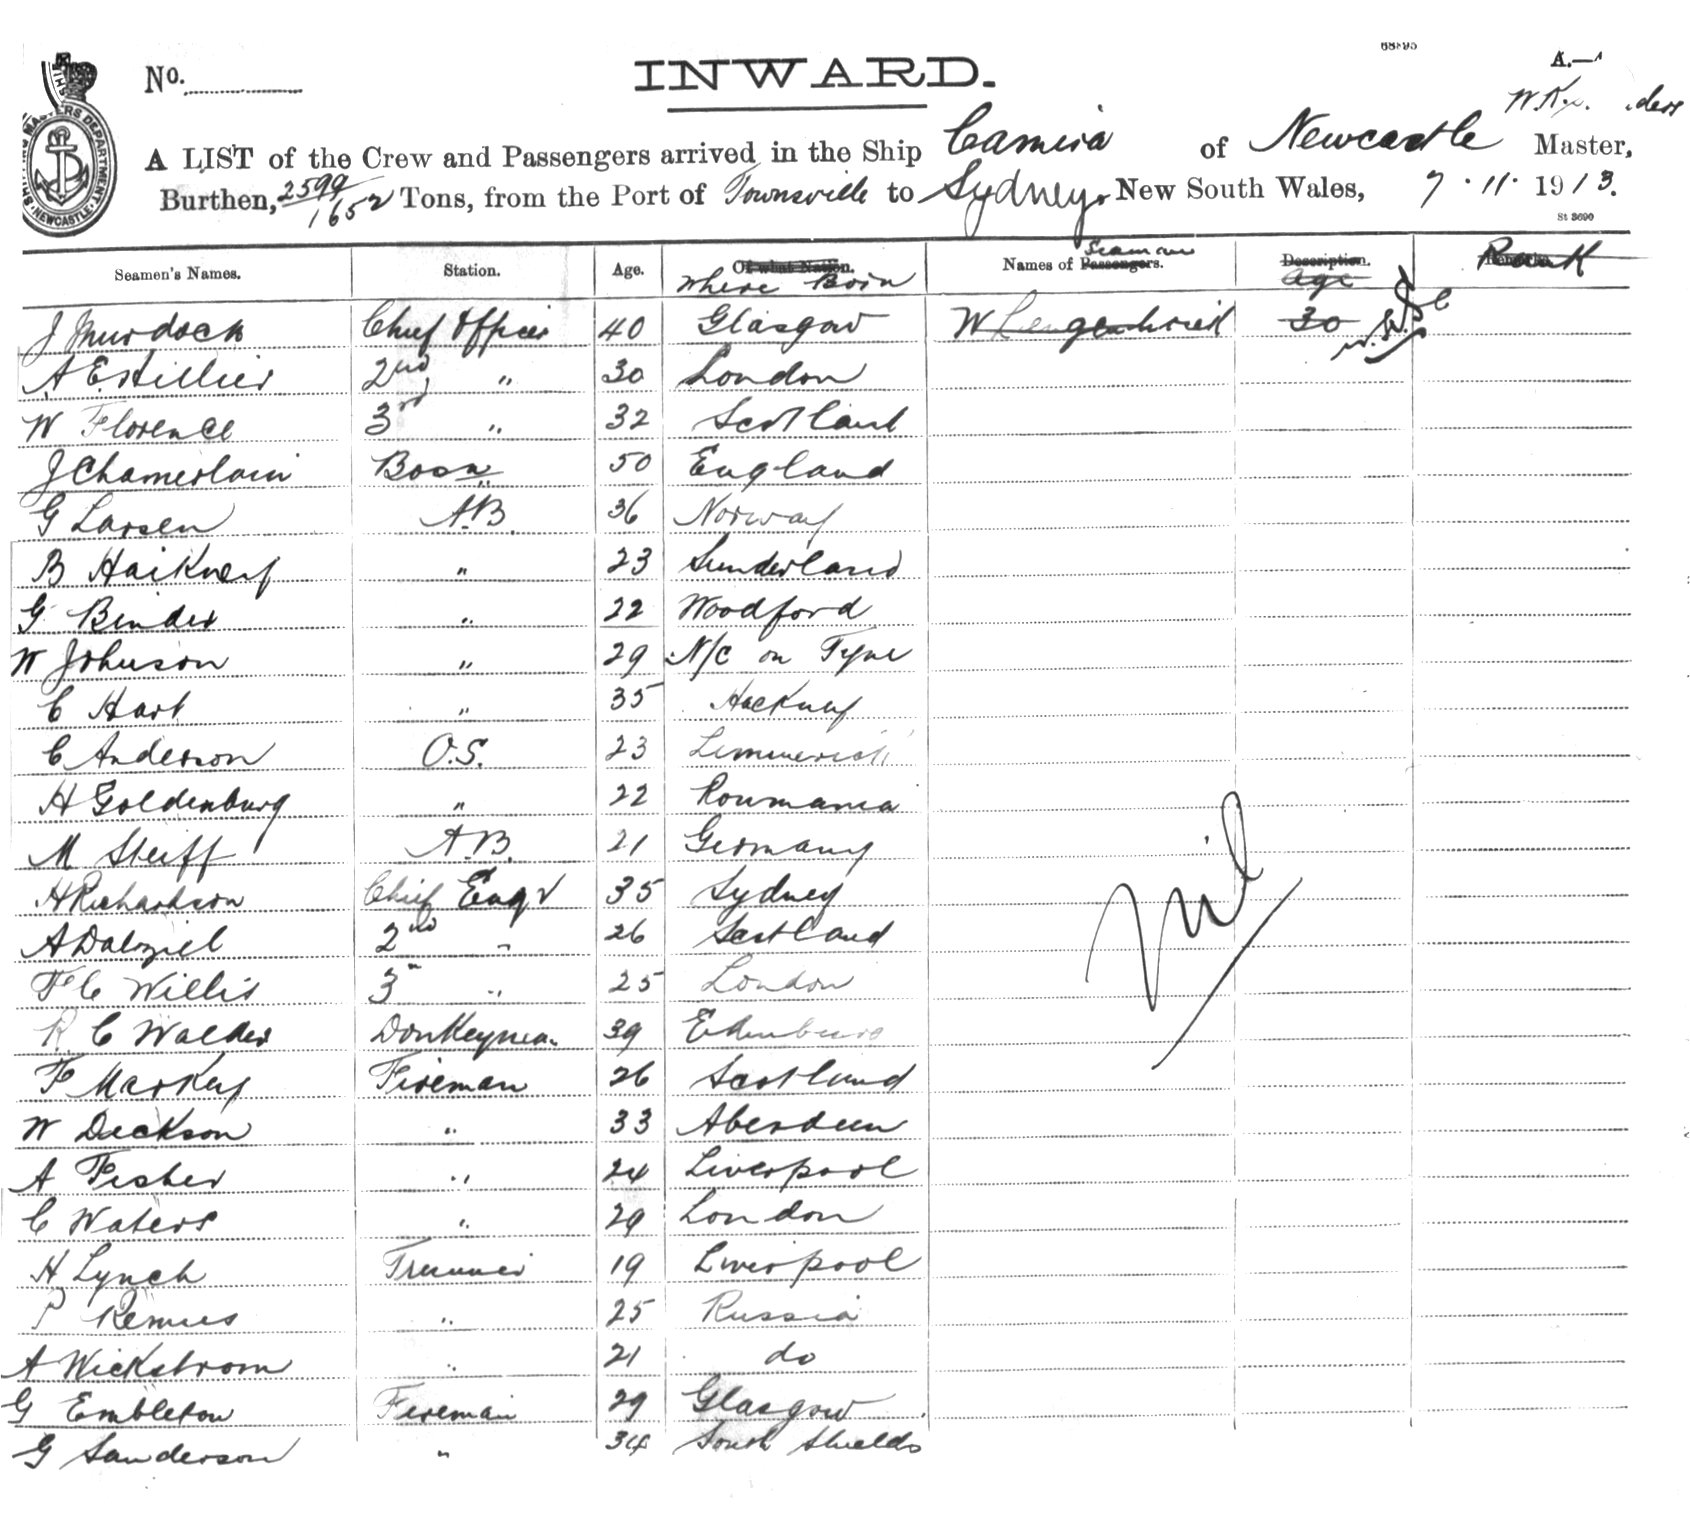 68895
A.—
No.
INWARD.
A LIST of the Crew and Passengers arrived in the Ship Camira of Newcastle Master,
Burthen, 2599/1652 Tons, from the Port of Townsville to Sydney, New South Wales, 7.11.1913.
St 3690
SHIPPING MASTERS DEPARTMENT NEWCASTLE
Seamen's Names. Station. Age. Of what Nation. Where Born Names of Passengers. Seaman Description. Age Rank
J Murdock Chief Officer 40 Glasgow W 30 N.S.W.
A E Hillier 2nd " 30 London
W Florence 3rd " 32 Scotland
J Chamerlain Bosn 50 England
G Larsen A.B. 36 Norway
B Haikney " 23 Sunderland
G Binder " 22 Woodford
W Johnson " 29 N/c on Tyne
C Hart " 35 Hackney
C Anderson O.S. 23 Limmerick
H Goldenburg " 22 Roumania
M Steiff A.B. 21 Germany
H Richardson Chief Engr 35 Sydney
A Dalziel 2nd " 26 Scotland
F C Willis 3" " 25 London
R C Walder Donkeyman 39 Edenburg
F Markey Fireman 26 Scotland
W Dickson " 33 Aberdeen
A Fisher " 24 Liverpool
C Waters " 29 London
H Lynch Trimmer 19 Liverpool
P Remus " 25 Russia
A Wickstrom " 21 do
G Embleton Fireman 29 Glasgow
G Sanderson " 34 South Shields
Nil